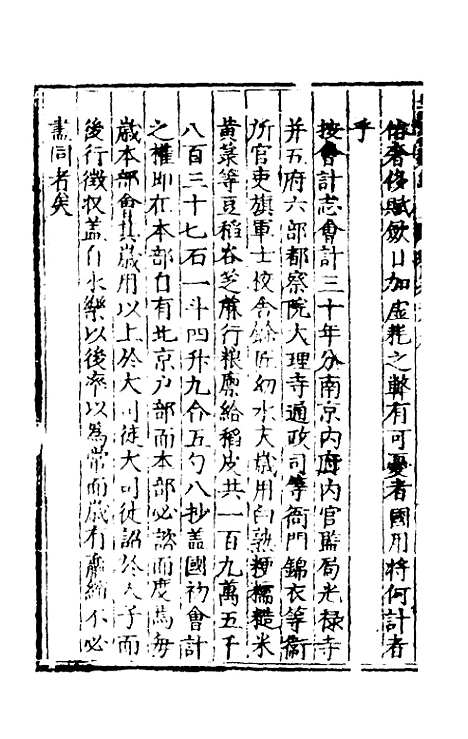 俗奢侈賦斂日加虛耗之弊有可憂者國用將何計者
乎
按會計志會計三十年分南京內府內官監局光祿寺
并五府六部都察院大理寺通政司等衙門錦衣等衛
所官吏旗軍士校舍餘匠幼水夫歲用白熟粳糯糙米
黃菉等豆稻谷芝蔴行粮廩給稻皮共一百九萬五千
八百三十七石一斗四升九合五勺八抄蓋國初會計
之權即在本部自有北京戶部而本部必諮而度焉每
歲本部會其歲用以上於大司徒大司徒詔於天子而
後行徵收蓋自永樂以後率以為常而歲有贏縮不必
盡同者矣